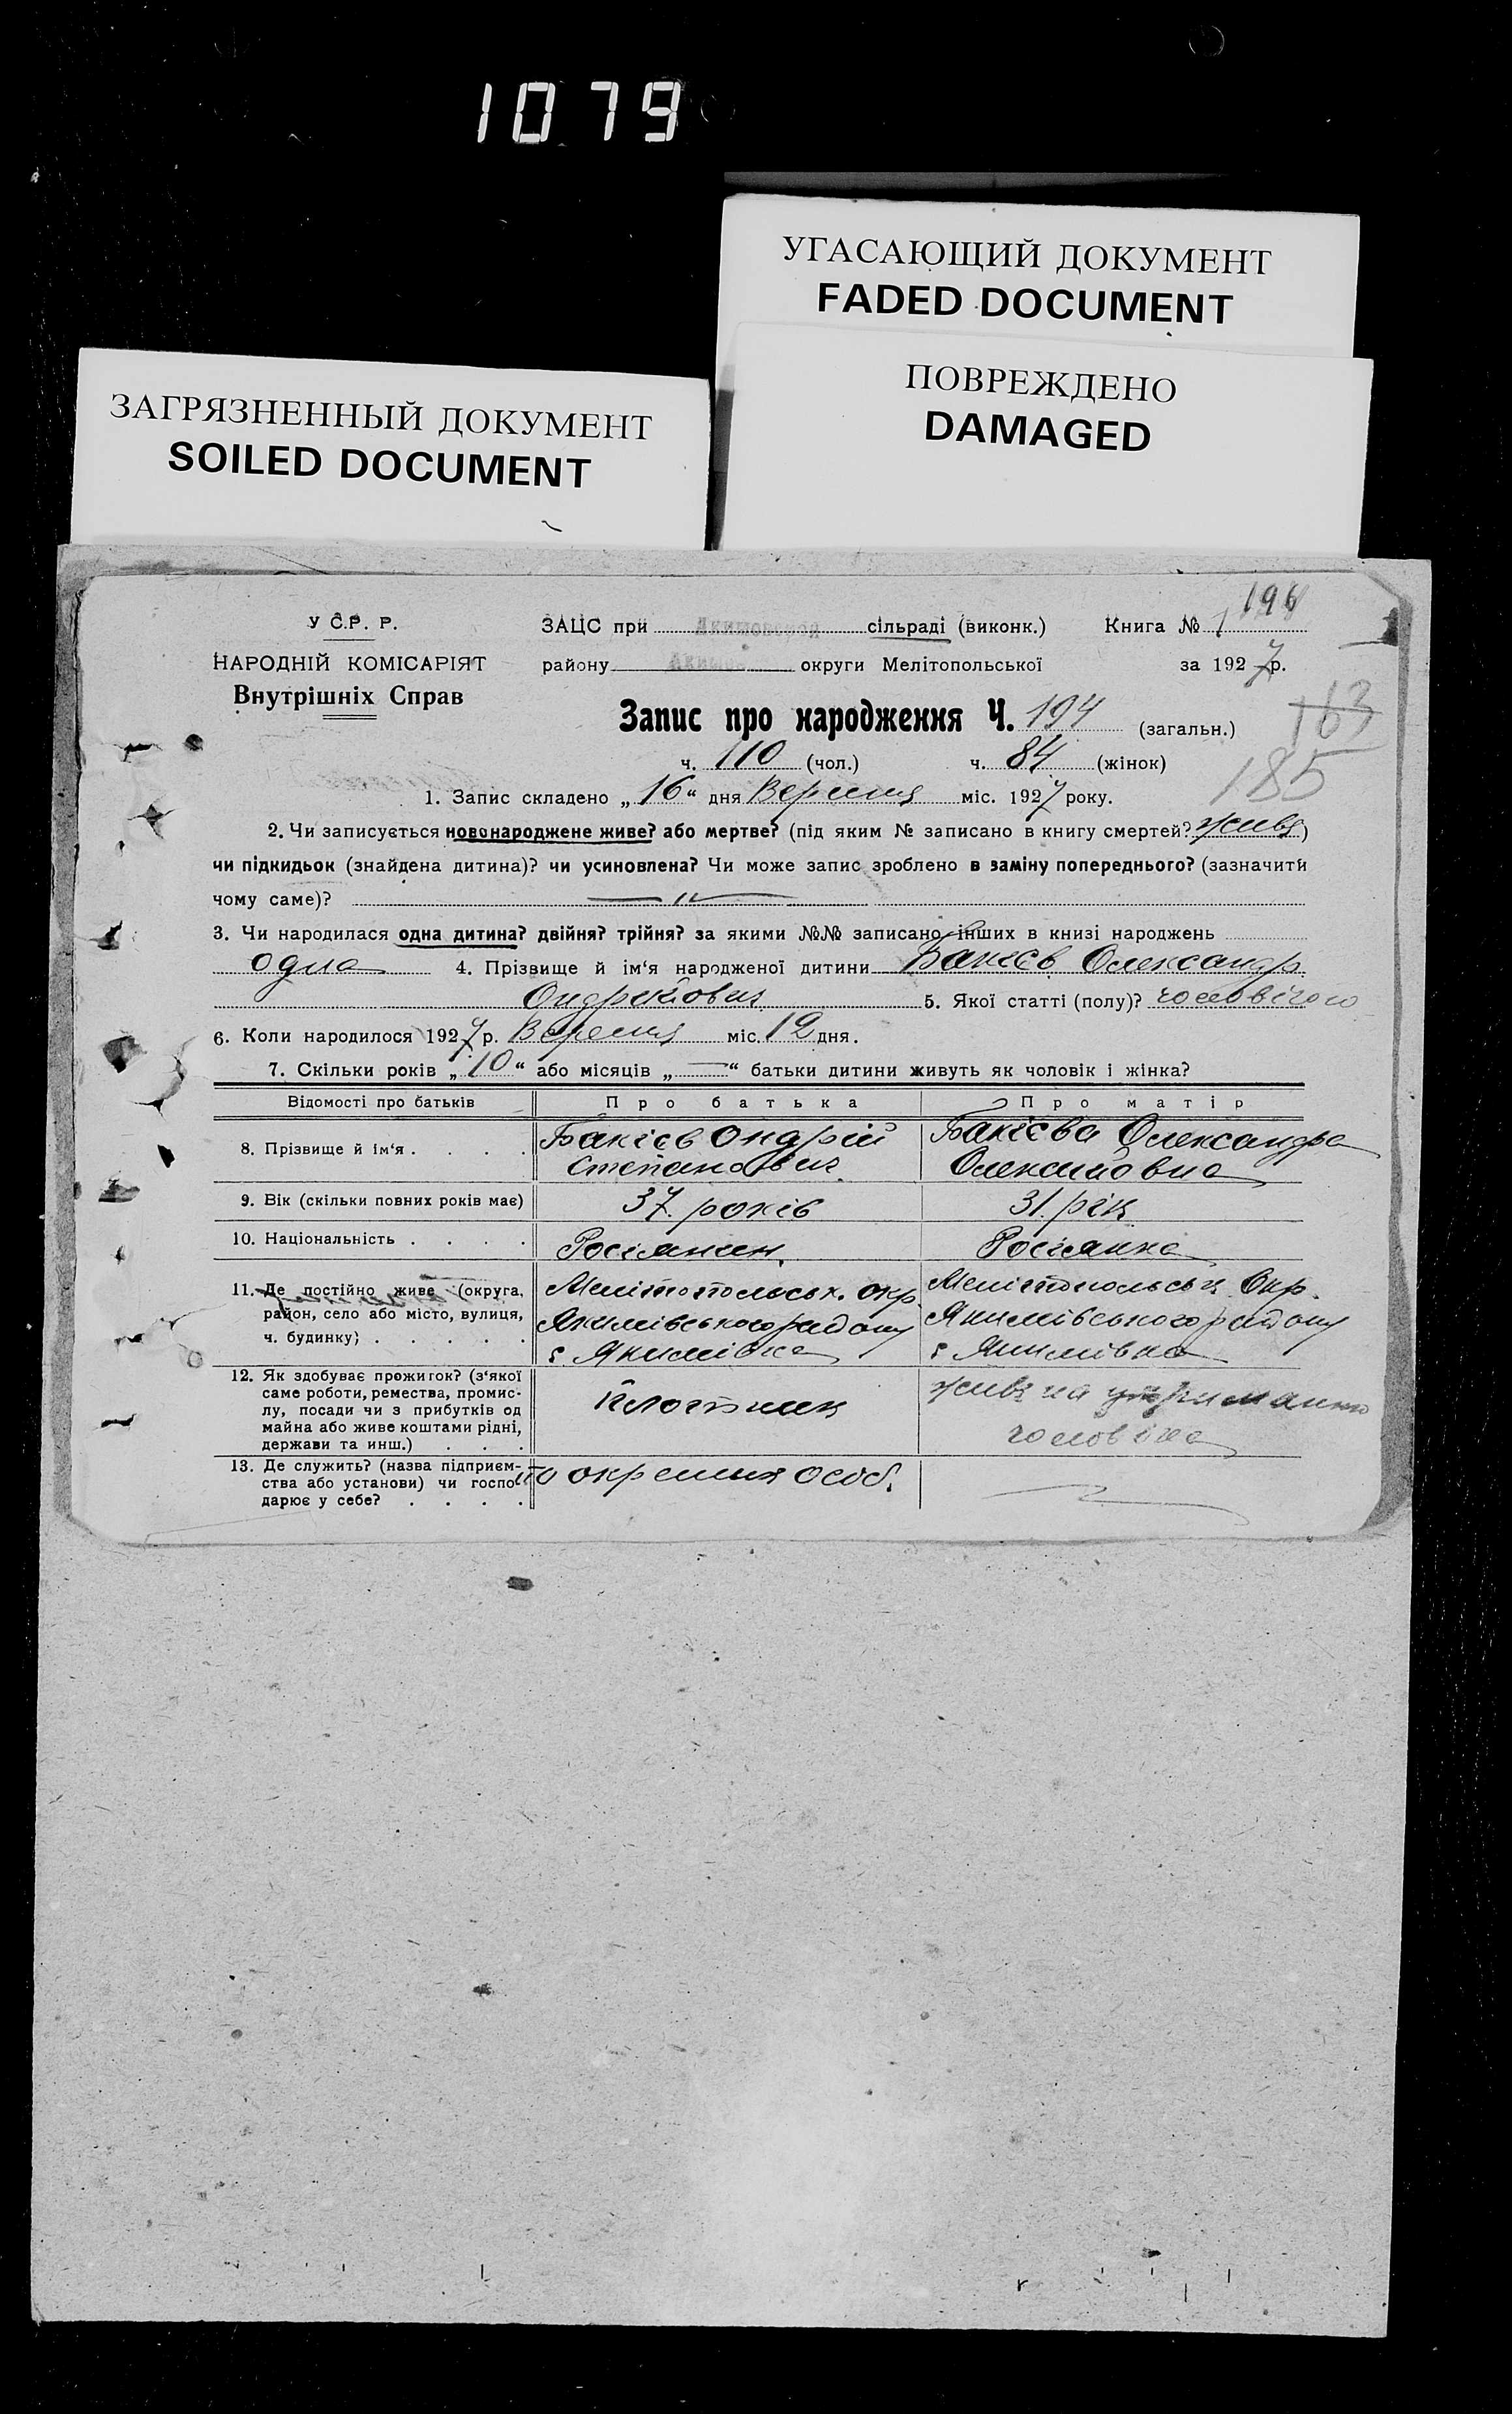 1079
УГАСАЮЩИЙ ДОКУМЕНТ
FADED DOCUMENT
ПОВРЕЖДЕНО
DAMAGED
ЗАГРЯЗНЕННЫЙ ДОКУМЕНТ
SOILED DOCUMENT
У С.Р. Р.
НАРОДНІЙ КОМІСАРІЯТ
Внутрішніх Справ
ЗАЦС при сільраді (виконк.) Книга № 1
району округи Мелітопольської за 1927 р.
Запис про народження Ч. 194 (загальн.)
163
ч. 110 (чол.) ч. 84 (жінок)
185
1. Запис складено „16“ дня Вересня міс. 1927 року.
2. Чи записується новонароджене живе? або мертве? (під яким № записано в книгу смертей? живе)
чи підкидьок (знайдена дитина)? чи усиновлена? Чи може запис зроблено в заміну попереднього? (зазначити
чому саме)? — " —
3. Чи народилася одна дитина? двійня? трійня? за якими №№ записано інших в книзі народжень
одна 4. Прізвище й ім‘я народженої дитини Бакієв Олександр
Ондрійович 5. Якої статті (полу)? чоловічого
6. Коли народилося 1927 р. Вересня міс. 12 дня.
7. Скільки років „10“ або місяців „—“ батьки дитини живуть як чоловік і жінка?
Відомості про батьків Про батька Про матір
8. Прізвище й ім‘я . . . . Бакієв Ондрій Бакієва Олександра
Степанович Олексійовна
9. Вік (скільки повних років має) 37 років 31 рік
10. Національність . . . . Росіянин Росіянка
11. Де постійно живе (округа, Мелітопольськ. окр. Мелітопольськ Окр.
район, село або місто, вулиця, Якимівського району Якимівського району
ч. будинку) . . . . . с Якимівка с Якимівка
12. Як здобуває прожиток? (з‘якої
саме роботи, ремества, промис-
лу, посади чи з прибутків од Плотник живе на утриманню
майна або живе коштами рідні, чоловіка
держави та инш.) . . .
13. Де служить? (назва підприєм-
ства або установи) чи госпо- по окремих особ.
дарює у себе? . . . .